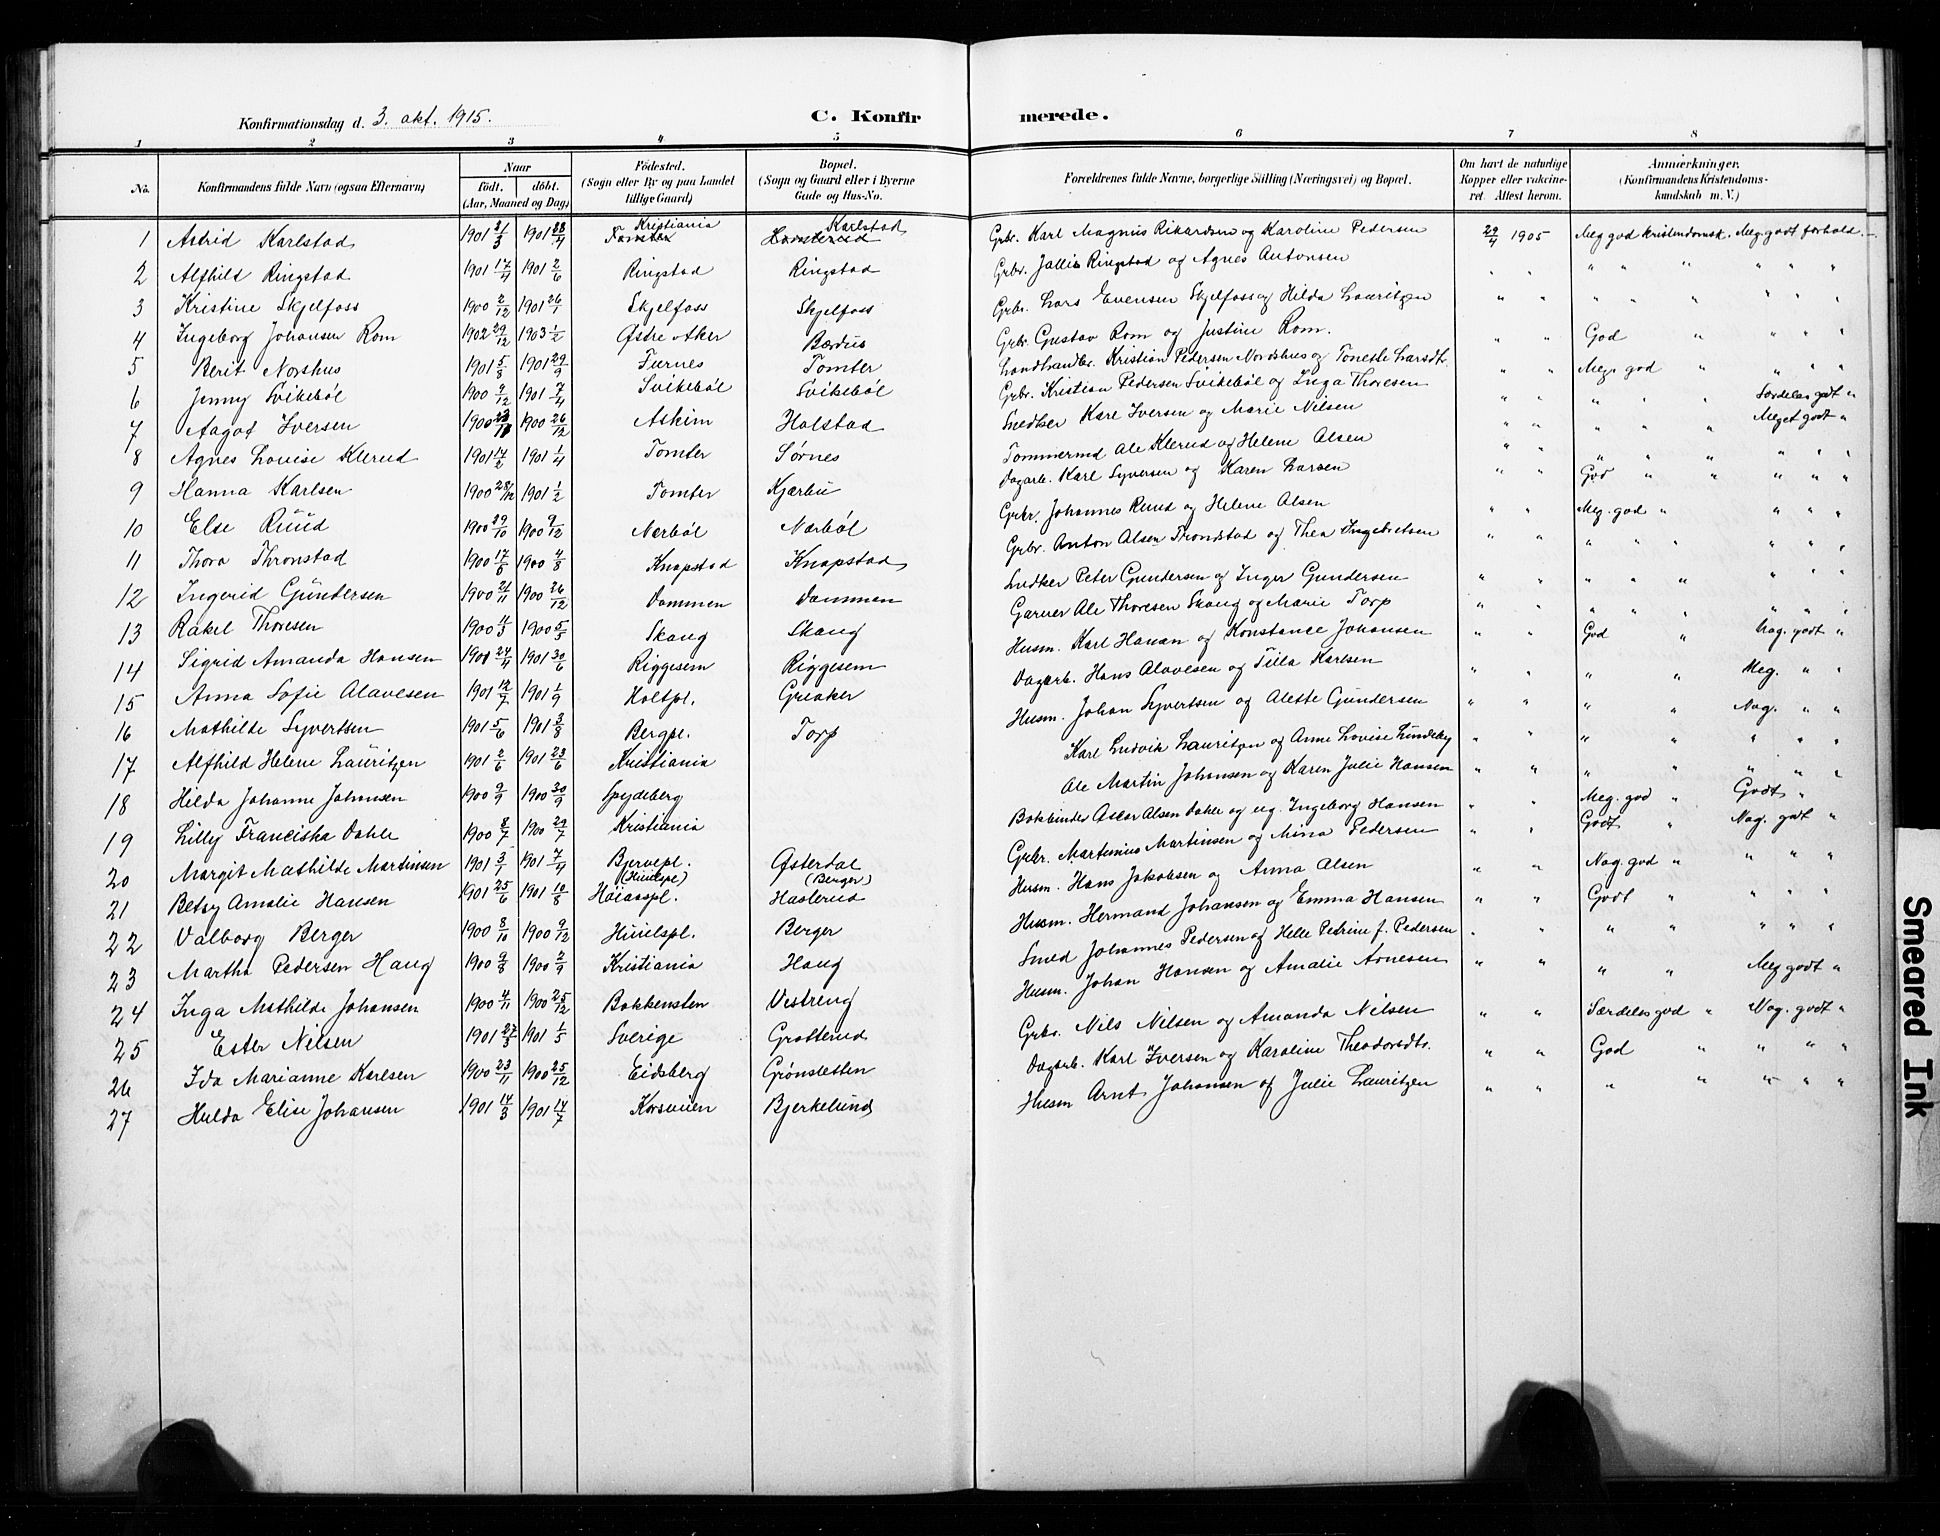 Konfirmationsdag d. 3. okt. 1915. C. Konfirmerede.
1 2 3 4 5 6 7 8
No. Konfirmandens fulde Navn (ogsaa Efternavn) Naar født, døbt. (Aar, Maaned og Dag) Fødested. (Sogn eller By og paa Landet tillige Gaard) Bopæl. (Sogn og Gaard eller i Byerne Gade og Hus-No.) Forældrenes fulde Navne, borgerlige Stilling (Næringsvei) og Bopæl. Om havt de naturlige Kopper eller vaccineret. Attest herom. Anmærkninger. (Konfirmandens Kristendomskundskab m. V.)
1 Astrid Karlstad 1901 21/3 1901 28/4 Kristiania Tomter Karlstad Grbr. Karl Magnus Rikardsen og Karoline Pedersen 29/4 1905 Meg god kristendomsk. Meg. godt forhold.
2 Alfhild Ringstad 1901 17/4 1901 2/6 Ringstad Ringstad Grbr. Ringstad og Agnes Antonsen " " " " " " " "
3 Kristine Skjelfoss 1900 2/12 1901 26/1 Skjelfoss Skjelfoss Grbr. Lars Evensen Skjelfoss og Hilda Lauritzen " " " " " " " "
4 Ingeborg Johansen Rom 1902 29/12 1903 1/2 Østre Aker Bærdus Grbr. Gustav Rom og Justine Rom. " " God " " " "
5 Berit Norshus 1901 5/8 1901 29/9 Furnes Tomter Landhandler. Kristian Pedersen Nordshus og Tonette Larsdtr. " " Meg. god " " " "
6 Jenny Svikebøl 1900 9/12 1901 7/4 Svikebøl Svikebøl Grbr. Kristian Pedersen Svikebøl og Inga Thoresen " " " " " Særdeles godt "
7 Aagot Iversen 1900 1900 26/12 Askim Holstad Snedker Karl Iversen og Marie Nilsen " " " " " Meget godt "
8 Agnes Lovise Klerud 1901 17/2 1901 1/4 Tomter Sørnes Tømmermd Ole Klerud og Helene Olsen " " " " " " " "
9 Hanna Karlsen 1900 28/12 1901 1/2 Tomter Kjærbu Dagarb. Karl Syversen og Karen Larsen " " God " " " " "
10 Else Ruud 1900 29/10 1900 9/12 Nærbøl Nærbøl Grbr. Johannes Ruud og Helene Olsen " " Meg. god " " " "
11 Thora Thronstad 1900 17/6 1900 4/8 Knapstad Knapstad Grbr. Anton Olsen Trondstad og Thea Ingebretsen " " " " " " " "
12 Ingerid Gundersen 1900 21/11 1900 26/12 Dammen Dammen Snedker Peter Gundersen og Inger Gundersen " " " " " " " "
13 Rakel Thoresen 1900 11/3 1900 5/5 Skaug Skaug Garver Ole Thoresen Skaug og Marie Torp " " " " " " " "
14 Sigrid Amanda Hansen 1901 24/4 1901 30/6 Riggesem Riggesem Husm. Karl Hansen og Konstance Johansen " " God " Nag. godt "
15 Anna Sofie Olavesen 1901 12/7 1901 1/9 Holtpl. Greaker Dagarb. Hans Olavesen og Tilla Karlsen " " " " Meg. " "
16 Mathilde Syvertsen 1901 5/6 1901 3/8 Bergpl. Torp Husm. Johan Syvertsen og Alette Gundersen " " " " Nag. " "
17 Alfhild Helene Lauritzen 1901 2/6 1901 23/6 Kristiania Karl Ludvik Lauritzen og Anne Lovise Lundeby " " " " " " "
18 Hilda Johanne Johansen 1900 9/9 1900 30/9 Spydeberg Ole Martin Johansen og Karen Julie Hansen " " " " " " "
19 Lilly Franciska Dahle 1900 8/7 1900 29/7 Kristiania Bokbinder Oscar Olsen Dahle og ug. Ingeborg Hansen " " Meg. god " Godt "
20 Margit Mathilde Martinsen 1901 3/1 1901 7/4 Bjervepl. Østerdal Grbr. Martinius Martinsen og Mina Pedersen " " Godt " Nag. godt "
21 Betsy Amalie Hansen 1901 25/6 1901 10/8 (Huielspl.) Høiaaspl. (Berger) Haslerud Husm. Hans Jakobsen og Anna Olsen " " Nag. god " " " "
22 Valborg Berger 1900 8/10 1900 9/12 Huielspl. Berger Husm. Hermand Johansen og Emma Hansen " " Godt " " " "
23 Martha Pedersen Haug 1900 9/8 1900 2/9 Kristiania Haug Smed Johannes Pedersen og Helle Petrine f. Pedersen " " " " " " "
24 Inga Mathilde Johansen 1900 4/11 1900 25/12 Bakkensten Vestreng Husm. Johan Hansen og Amalie Arnesen " " " " Meg godt "
25 Ester Nilsen 1901 27/3 1901 1/5 Sverige Grotterud Grbr. Nils Nilsen og Amanda Nilsen " " Særdeles god " Nag. godt "
26 Ida Marianne Karlsen 1900 23/11 1900 25/12 Eidsberg Grønsletten Dagarb. Karl Iversen og Karoline Theodorsdtr. " " God " " " "
27 Hulda Elise Johansen 1901 14/3 1901 14/7 Korsveien Bjerkelund Husm Arnt Johansen og Julie Lauritzen " " " " " " "
Smeared Ink